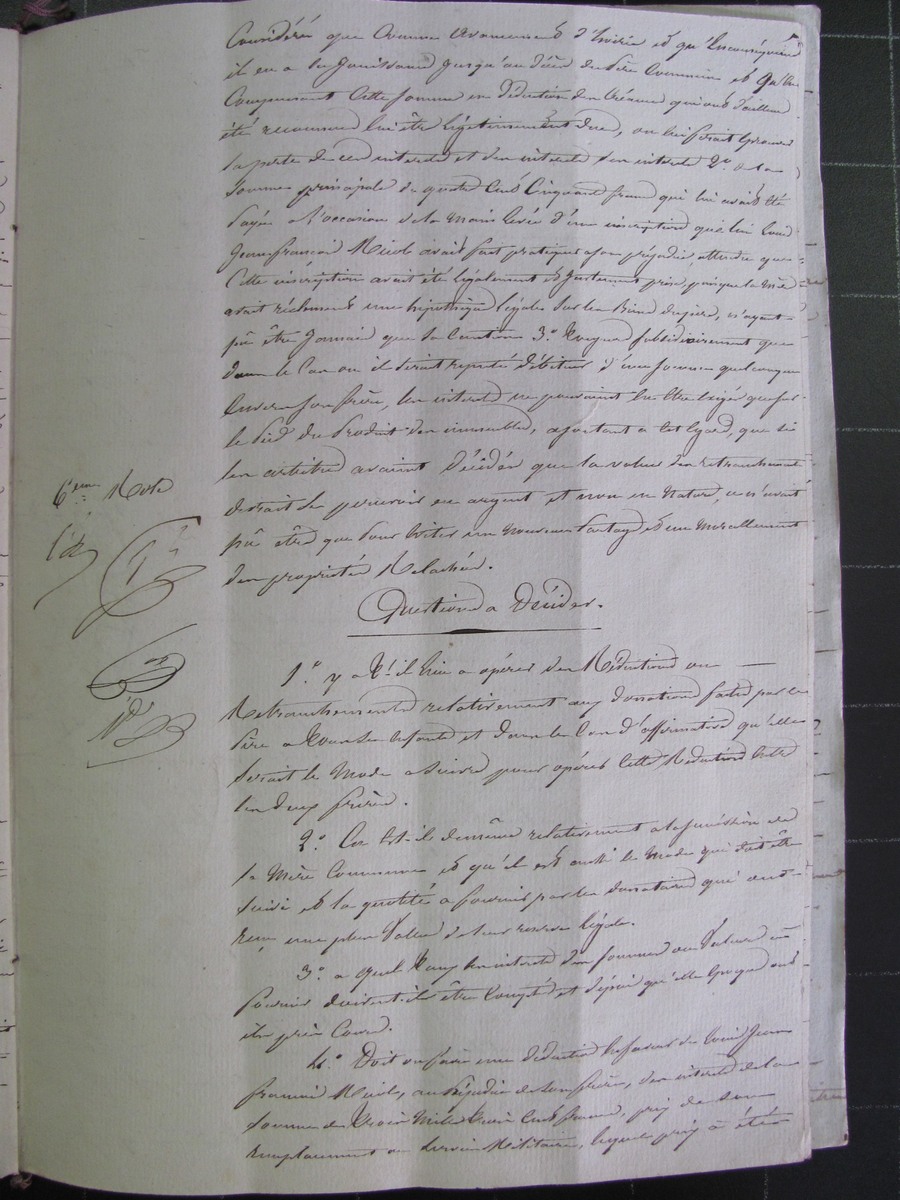 Considéré que comme avancement d'hoirie et qu'en conséquence
il en a la jouissance jusqu'au décès du père commun et qu'en
compensant cette somme en déduction des créances qui ont d'ailleurs
été reconnues lui être légitimement dues, on lui ferait éprouver
la perte de ces interets et des interets des interets 2.° de la
somme principale de quatre cens cinquante francs qui lui avait été
payée à l'occasion de la main levée d'une inscription que lui
Jean francois avait fait pratiquer à son préjudice, attendu que
cette inscription avait été légalement et justement prise, puisque la
avait réellement une hipothèque légale sur les Biens du père, n'ayant
pû être Jamais que sa caution 3.° subsidiairement que
dans le Cas où il serait réputé débiteur d'une somme quelconque
envers son frère, les interets ne pouvaient en être exigés que sur
le pied du Produit des immeubles, ajoutant à cet égard, que si
les arbitres avaient décidé que la valeur des retranchements
devrait se percevoir en argent et non en Nature, ce n'avait
pû être que pour éviter un nouveau partage, et un morcellement
des propriétés
6.eme Role
Questions a Décider.
1.° y a t-il lieu a opérer des Réductions ou
Retranchements relativement aux donations faites par le
père a tous ses enfants et dans le Cas d'affirmative quelle
serait le Mode a suivre pour opérer cette Réduction entre
les deux frères.
2.° En est-il de même relativement a la succession de
la Mère Commune et quel est aussi le mode qui doit être
suivi et la quotité a fournir par les donataires qui ont
reçu une plus value de leur reserve légale.
3.° a quel taux les interets des sommes ou valeurs a
fournir doivent-ils être comptés et depuis quelle époque ont
ils pris Cours.
4.° Doit on faire une déduction en faveur de Jean
francois au préjudice de son frère, des interets de la
somme de trois Mille cens francs, prix de son
remplacement au service Militaire, lequel prix a été